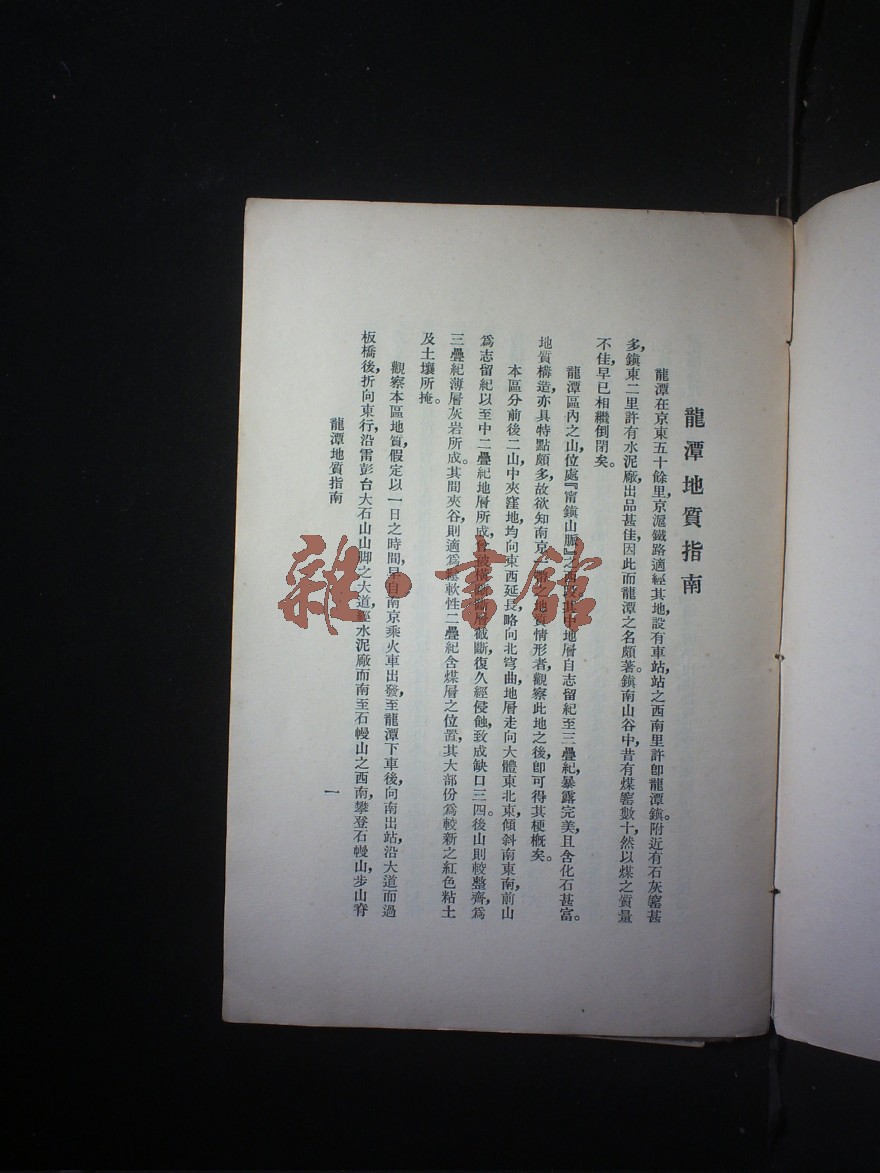 龍潭地質指南
龍潭在京東五十餘里，京滬鐵路適經其地，設有車站，站之西南里許卽龍潭鎭。附近有石灰窰甚
多，鎭東二里許有水泥廠，出品甚佳，因此而龍潭之名頗著。鎭南山谷中，昔有煤窰數十，然以煤之質量
不佳，早已相繼倒閉矣。
龍潭區內之山，位處『甯鎭山脈』之西段，其中地層自志留紀至三疊紀，暴露完美，且含化石甚富。
地質構造，亦具特點頗多，故欲知南京一帶之地質情形者，觀察此地之後，卽可得其梗槪矣。
本區分前後二山，中夾窪地，均向東西延長，略向北穹曲，地層走向大體東北東，傾斜南東南，前山
爲志留紀以至中二疊紀地層所成，曾被橫斷斷層截斷，復久經侵蝕，致成缺口三四。後山則較整齊，爲
三疊紀薄層灰岩所成。其間夾谷，則適爲鬆軟性二疊紀含煤層之位置，其大部份爲較新之紅色粘土
及土壤所掩。
觀察本區地質，假定以一日之時間，早自南京乘火車出發，至龍潭下車後，向南出站，沿大道而過
板橋後，折向東行，沿雷彭台大石山山脚之大道，經水泥廠而南至石幔山之西南，攀登石幔山，步山脊
龍潭地質指南
一
雜·書館